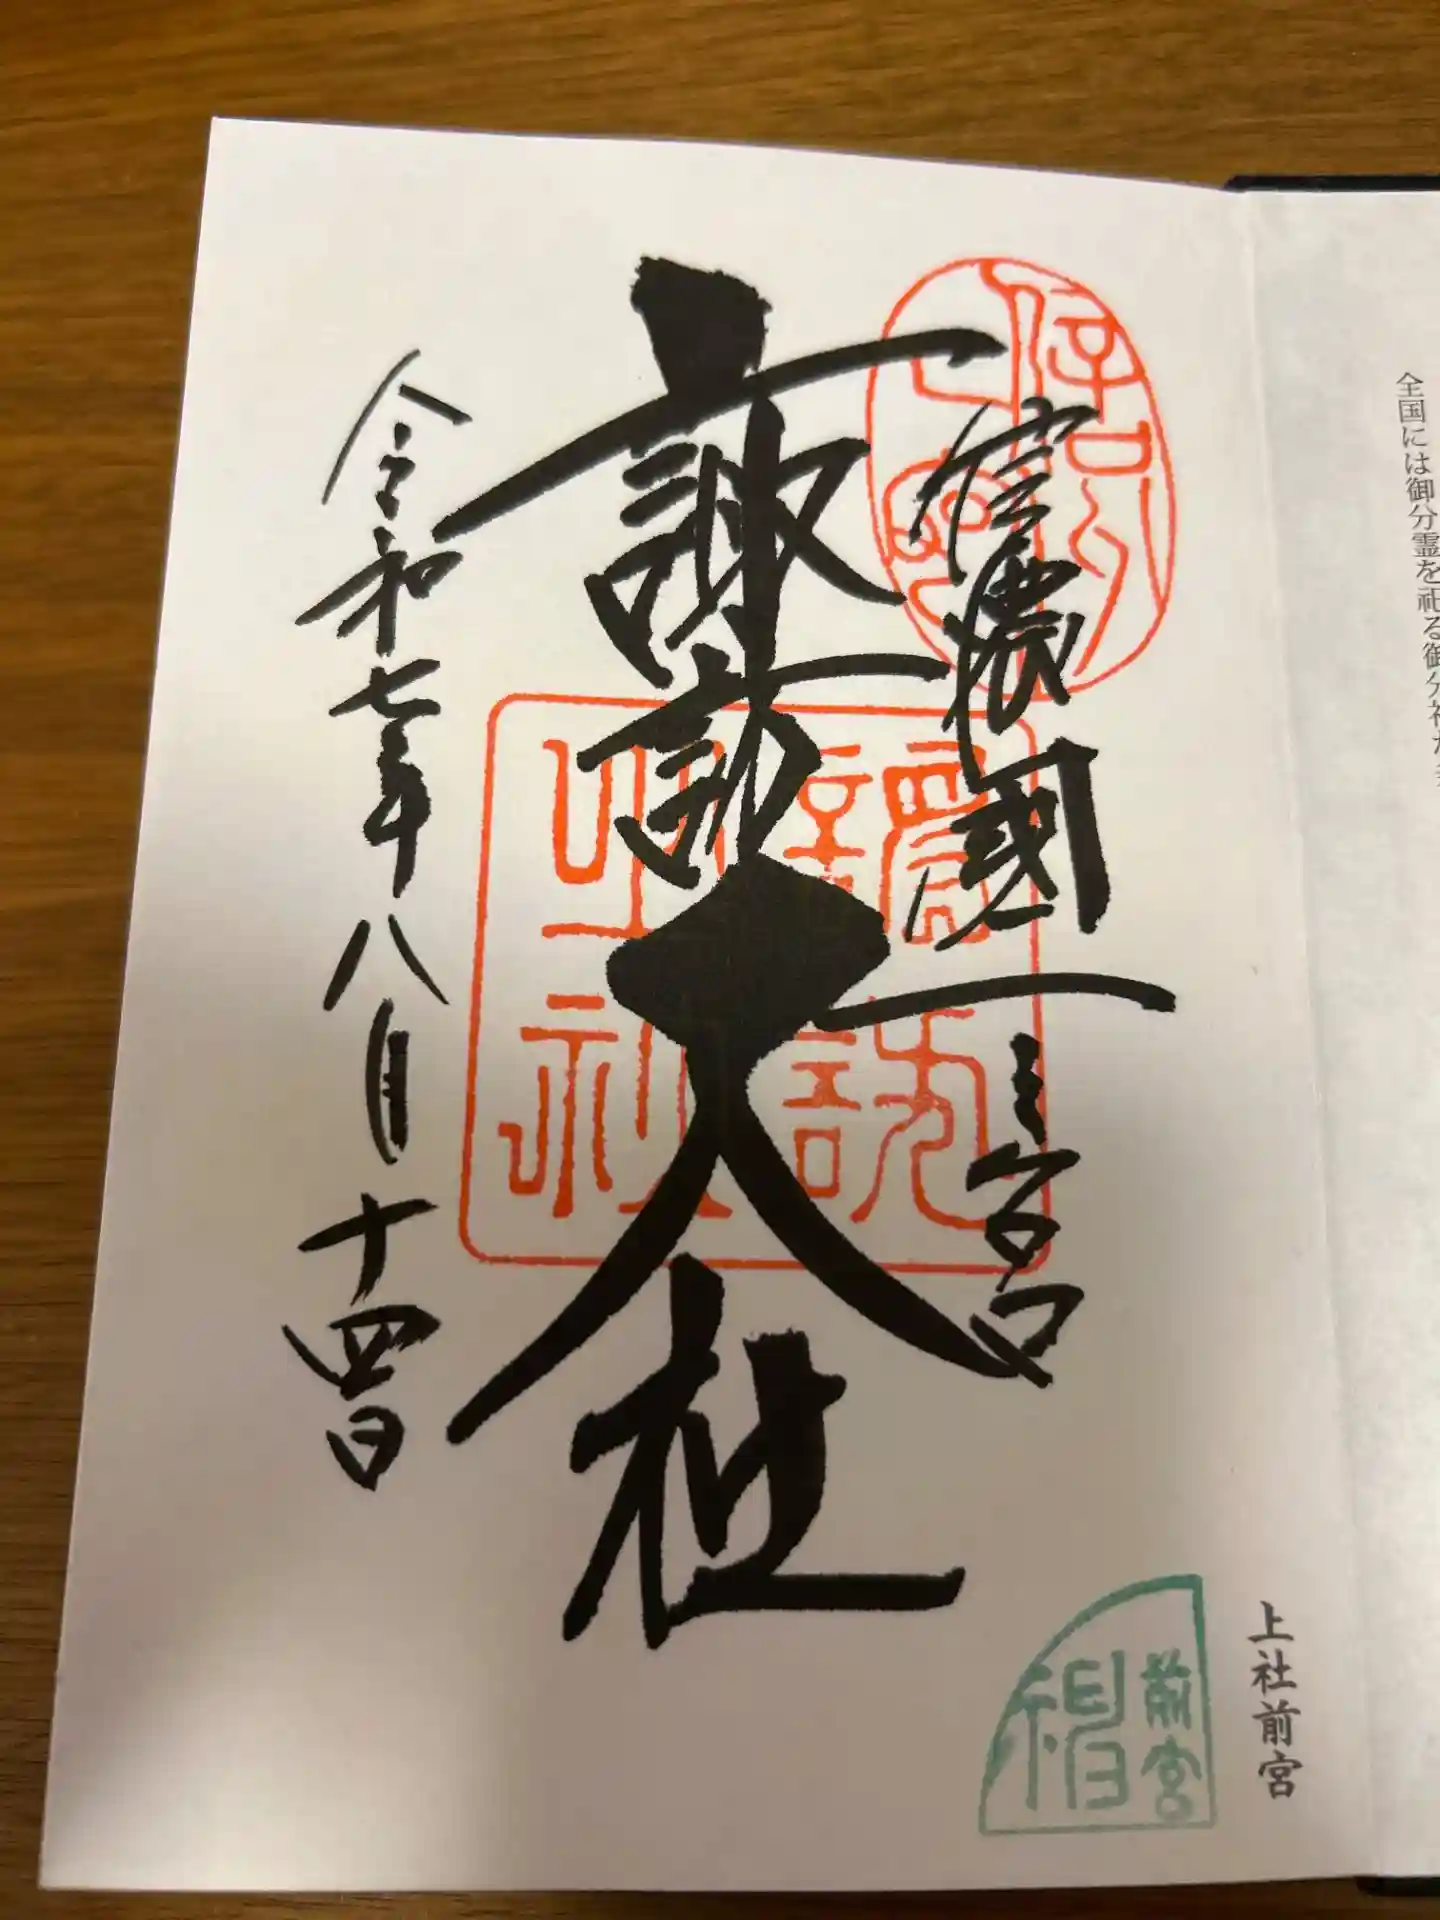 全国には御分霊を祀る御分社が
信濃國一之宮
諏訪大社
令和七年八月十四日
諏訪大社
上社前宮
前宮